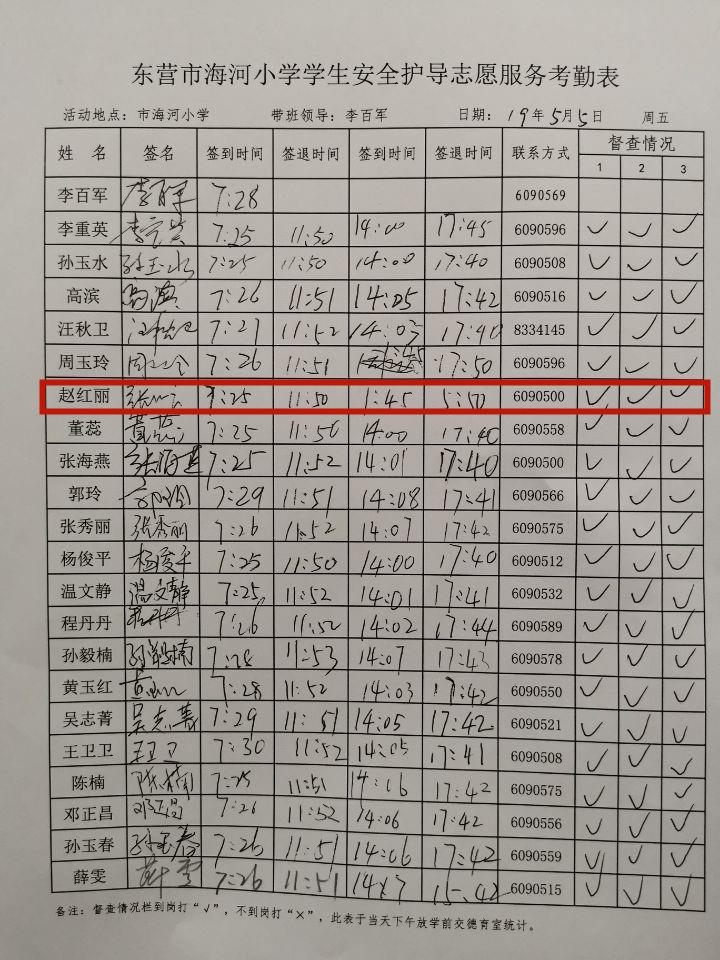 东营市海河小学学生安全护导志愿服务考勤表
活动地点：市海河小学 带班领导：李百军 日期：19年5月5日 周五
姓 名 签名 签到时间 签退时间 签到时间 签退时间 联系方式 督查情况
1 2 3
李百军 李百军 7:28 6090569
李重英 李重英 7:25 11:50 14:00 17:45 6090596 ✓ ✓ ✓
孙玉水 孙玉水 7:25 11:50 14:00 17:40 6090508 ✓ ✓ ✓
高滨 高滨 7:26 11:51 14:05 17:42 6090516 ✓ ✓ ✓
汪秋卫 汪秋卫 7:27 11:52 14:03 17:40 8334145 ✓ ✓ ✓
周玉玲 周玉玲 7:26 11:51 17:50 6090596 ✓ ✓ ✓
赵红丽 7:25 11:50 1:45 5:50 6090500 ✓ ✓ ✓
董蕊 董蕊 7:25 11:50 14:00 17:40 6090558 ✓ ✓ ✓
张海燕 张海燕 7:25 11:52 14:01 17:40 6090500 ✓ ✓ ✓
郭玲 郭玲 7:29 11:51 14:08 17:41 6090566 ✓ ✓ ✓
张秀丽 张秀丽 7:26 11:52 14:07 17:42 6090575 ✓ ✓ ✓
杨俊平 杨俊平 7:25 11:50 14:00 17:40 6090512 ✓ ✓ ✓
温文静 温文静 7:25 11:52 14:01 17:41 6090532 ✓ ✓ ✓
程丹丹 程丹丹 7:26 11:52 14:02 17:44 6090589 ✓ ✓ ✓
孙毅楠 孙毅楠 7:28 11:53 14:07 17:43 6090578 ✓ ✓ ✓
黄玉红 黄玉红 7:28 11:52 14:03 17:42 6090550 ✓ ✓ ✓
吴志菁 吴志菁 7:29 11:51 14:05 17:42 6090521 ✓ ✓ ✓
王卫卫 王卫卫 7:30 11:52 14:05 17:41 6090508 ✓ ✓ ✓
陈楠 陈楠 7:25 11:51 14:06 17:42 6090575 ✓ ✓ ✓
邓正昌 邓正昌 7:26 11:52 14:06 17:42 6090556 ✓ ✓ ✓
孙玉春 孙玉春 7:26 11:51 14:06 17:42 6090559 ✓ ✓ ✓
薛雯 薛雯 7:26 11:51 14:07 15:42 6090515 ✓ ✓ ✓
备注：督查情况栏到岗打“√”，不到岗打“×”，此表于当天下午放学前交德育室统计。